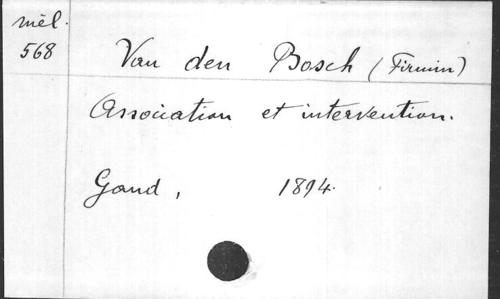 mél.
568
Van den Bosch (Firmin)
Association et intervention.
Gand, 1894.